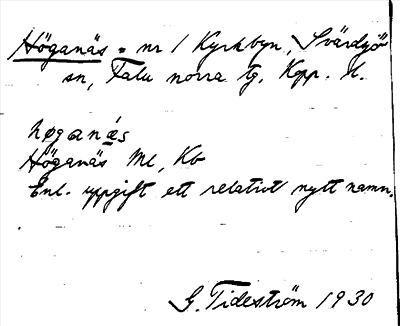 Höganäs = nr 1 Kyrkbyn, Svärdsjö
sn, Falu norra tg. Kopp. l.
høganæs
Höganäs Ml, Kb
Enl. uppgift ett relativt nytt namn.
G. Tideström 1930